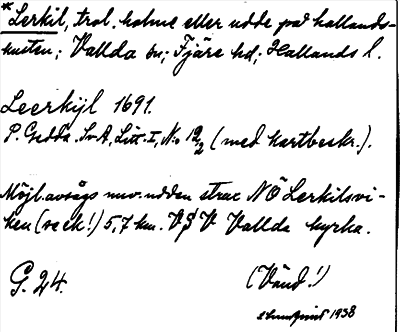 *Lerkil, trol. holme eller udde på hallands-
kusten; Vallda sn; Fjäre hd; Hallands l.
Leerkijl 1691.
P. Gedda. Sv. A, Litt. I, No 19/2 (med kartbeskr.).
Möjl. avsågs nuv. udden strax NÖ Lerkilsvi-
ken (se ek!) 5,7 km. V$V Vallda kyrka.
G. 24.
(Vänd!)
Lundqvist 1938